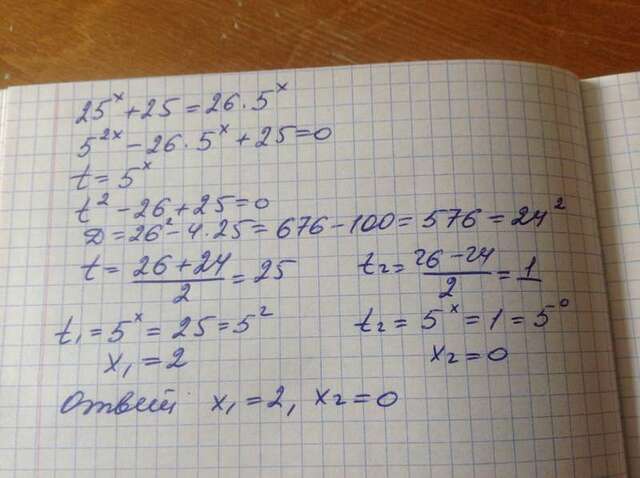 25^x + 25 = 26 · 5^x
5^2x − 26 · 5^x + 25 = 0
t = 5^x
t^2 − 26 + 25 = 0
D = 26^2 − 4 · 25 = 676 − 100 = 576 = 24^2
t = (26 + 24)/2 = 25   t₂ = (26 − 24)/2 = 1
t₁ = 5^x = 25 = 5^2   t₂ = 5^x = 1 = 5^0
x₁ = 2   x₂ = 0
Ответ x₁ = 2, x₂ = 0